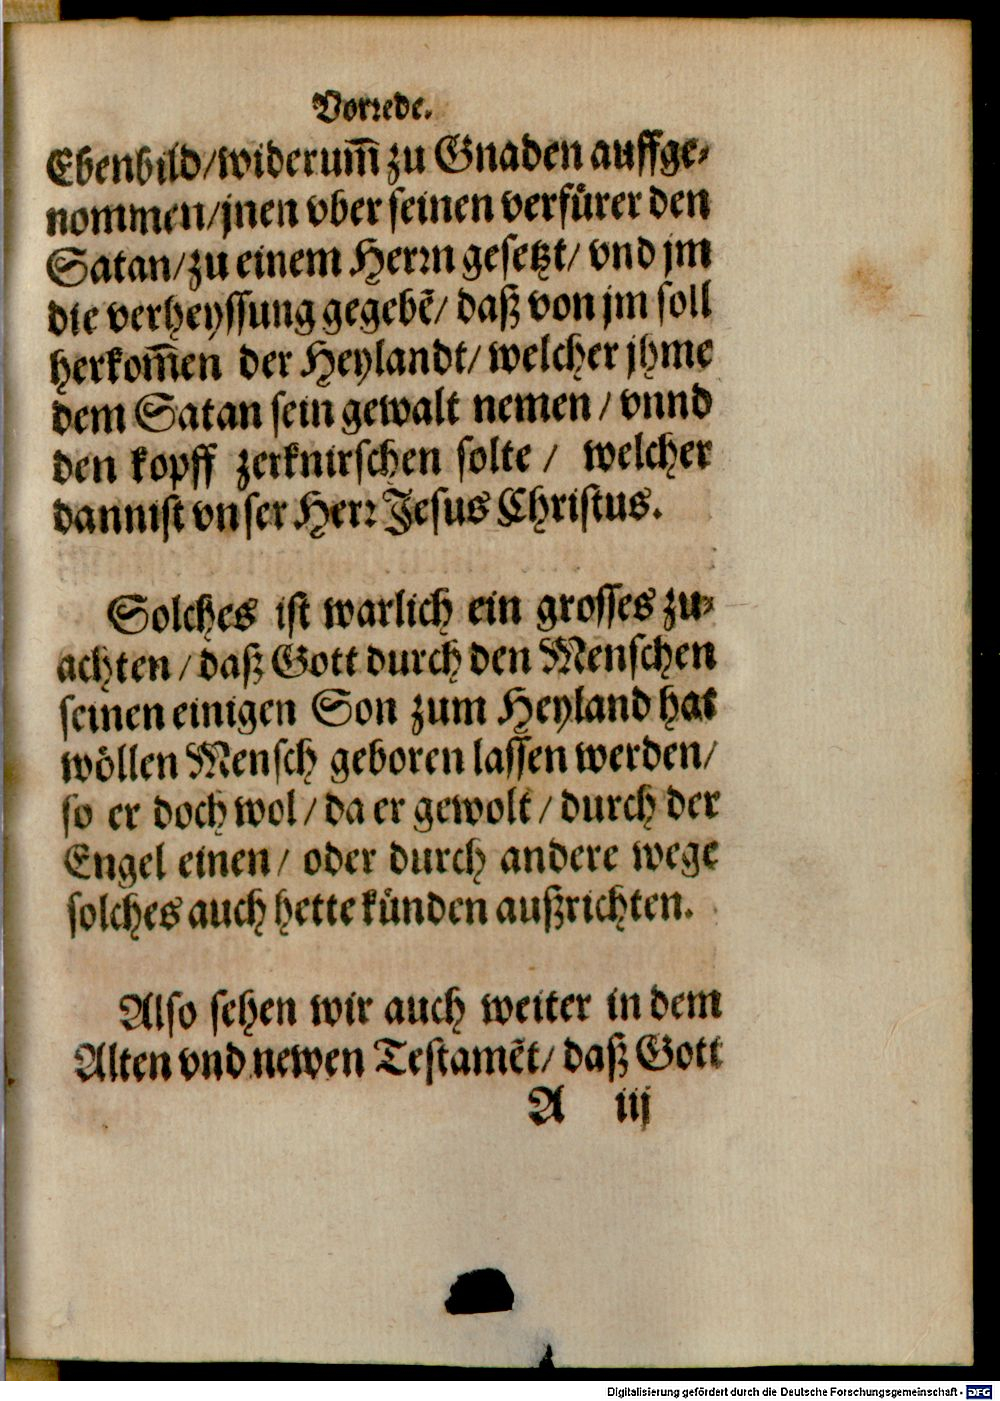 Vorrede.
Ebenbild/widerum̃ zu Gnaden auffge⸗
nommen/jnen vber seinen verfürer den
Satan/zu einem Herrn gesetzt/ vnd jm
die verheyssung gegebẽ/ daß von jm soll
herkom̃en der Heylandt/ welcher jhme
dem Satan sein gewalt nemen/ vnnd
den kopff zerknirschen solte/ welcher
dannist vnser Herr Jesus Christus.
Solches ist warlich ein grosses zu⸗
achten/ daß Gott durch den Menschen
seinen einigen Son zum Heyland hat
wöllen Mensch geboren lassen werden/
so er doch wol/ da er gewolt/ durch der
Engel einen/ oder durch andere wege
solches auch hette künden außrichten.
Also sehen wir auch weiter in dem
Alten vnd newen Testamẽt/ daß Gott
A iij
Digitalisierung gefördert durch die Deutsche Forschungsgemeinschaft - DFG